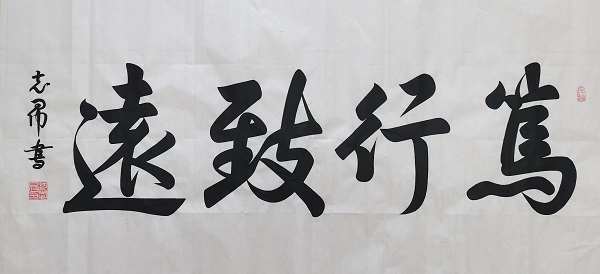 篤行致遠
志昂書